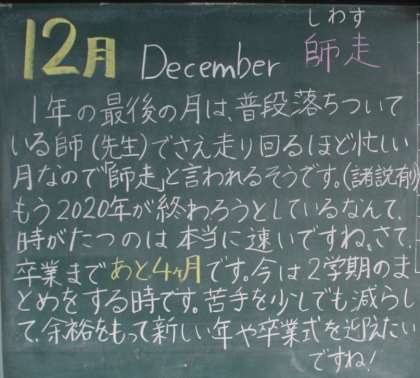 しわす
12月 December 師走
1年の最後の月は、普段落ちついて
いる師(先生)でさえ走り回るほど忙しい
月なので「師走」と言われるそうです。(諸説有り)
もう2020年が終わろうとしているなんて、
時がたつのは本当に速いですね。さて、
卒業まであと4ヶ月です。今は2学期のま
とめをする時です。苦手を少しでも減らし
て、余裕をもって新しい年や卒業式を迎えたい
ですね!